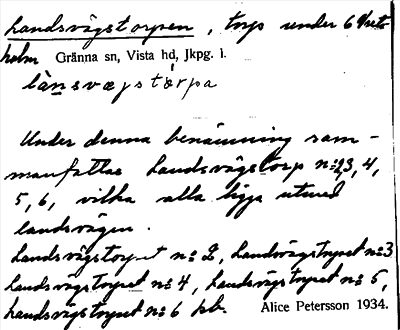 Landsvägstorpen, torp under Grete-
holm Gränna sn, Vista hd, Jkpg. l.
lànsvægstårpa
Under denna benämning sam-
manfattas Landsvägstorp n:2,3, 4,
5, 6, vilka alla ligga utmed
landsvägen.
Landsvägstorpet n: 2, Landsvägstorpet n:3
Landsvägstorpet n: 4, Landsvägstorpet n: 5,
Landsvägstorpet n: 6 jb. Alice Petersson 1934.